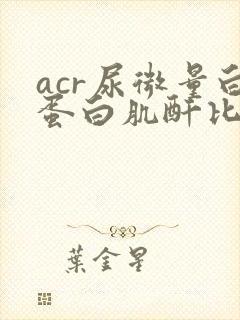 acr尿微量白
蛋白肌酐比
葉金星